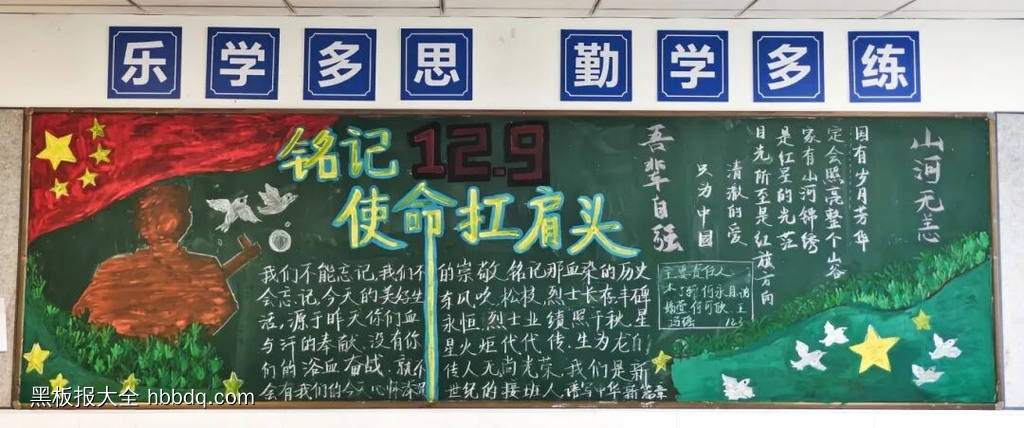 乐学多思 勤学多练
铭记 12.9
使命扛肩头
我们不能忘记,我们不
会忘记,今天的美好生
活,源于昨天你们血
与汗的奉献,没有你
们的浴血奋战,就
会有我们的今天
的崇敬,铭记那血染的历史
东风吹,松枝,烈士长存丰碑
永恒,烈士业绩照千秋,星
星火炬代代传,生为龙的
传人无尚光荣,我们是新
世纪的接班人,谱写中华新篇章
山河无恙
国有岁月芳华
定会照亮整个山谷
家有山河锦绣
是红星的光茫
目光所至是红旗方向
清澈的爱
只为中国
吾辈自强
主要责任人
黑板报大全 hbbdq.com